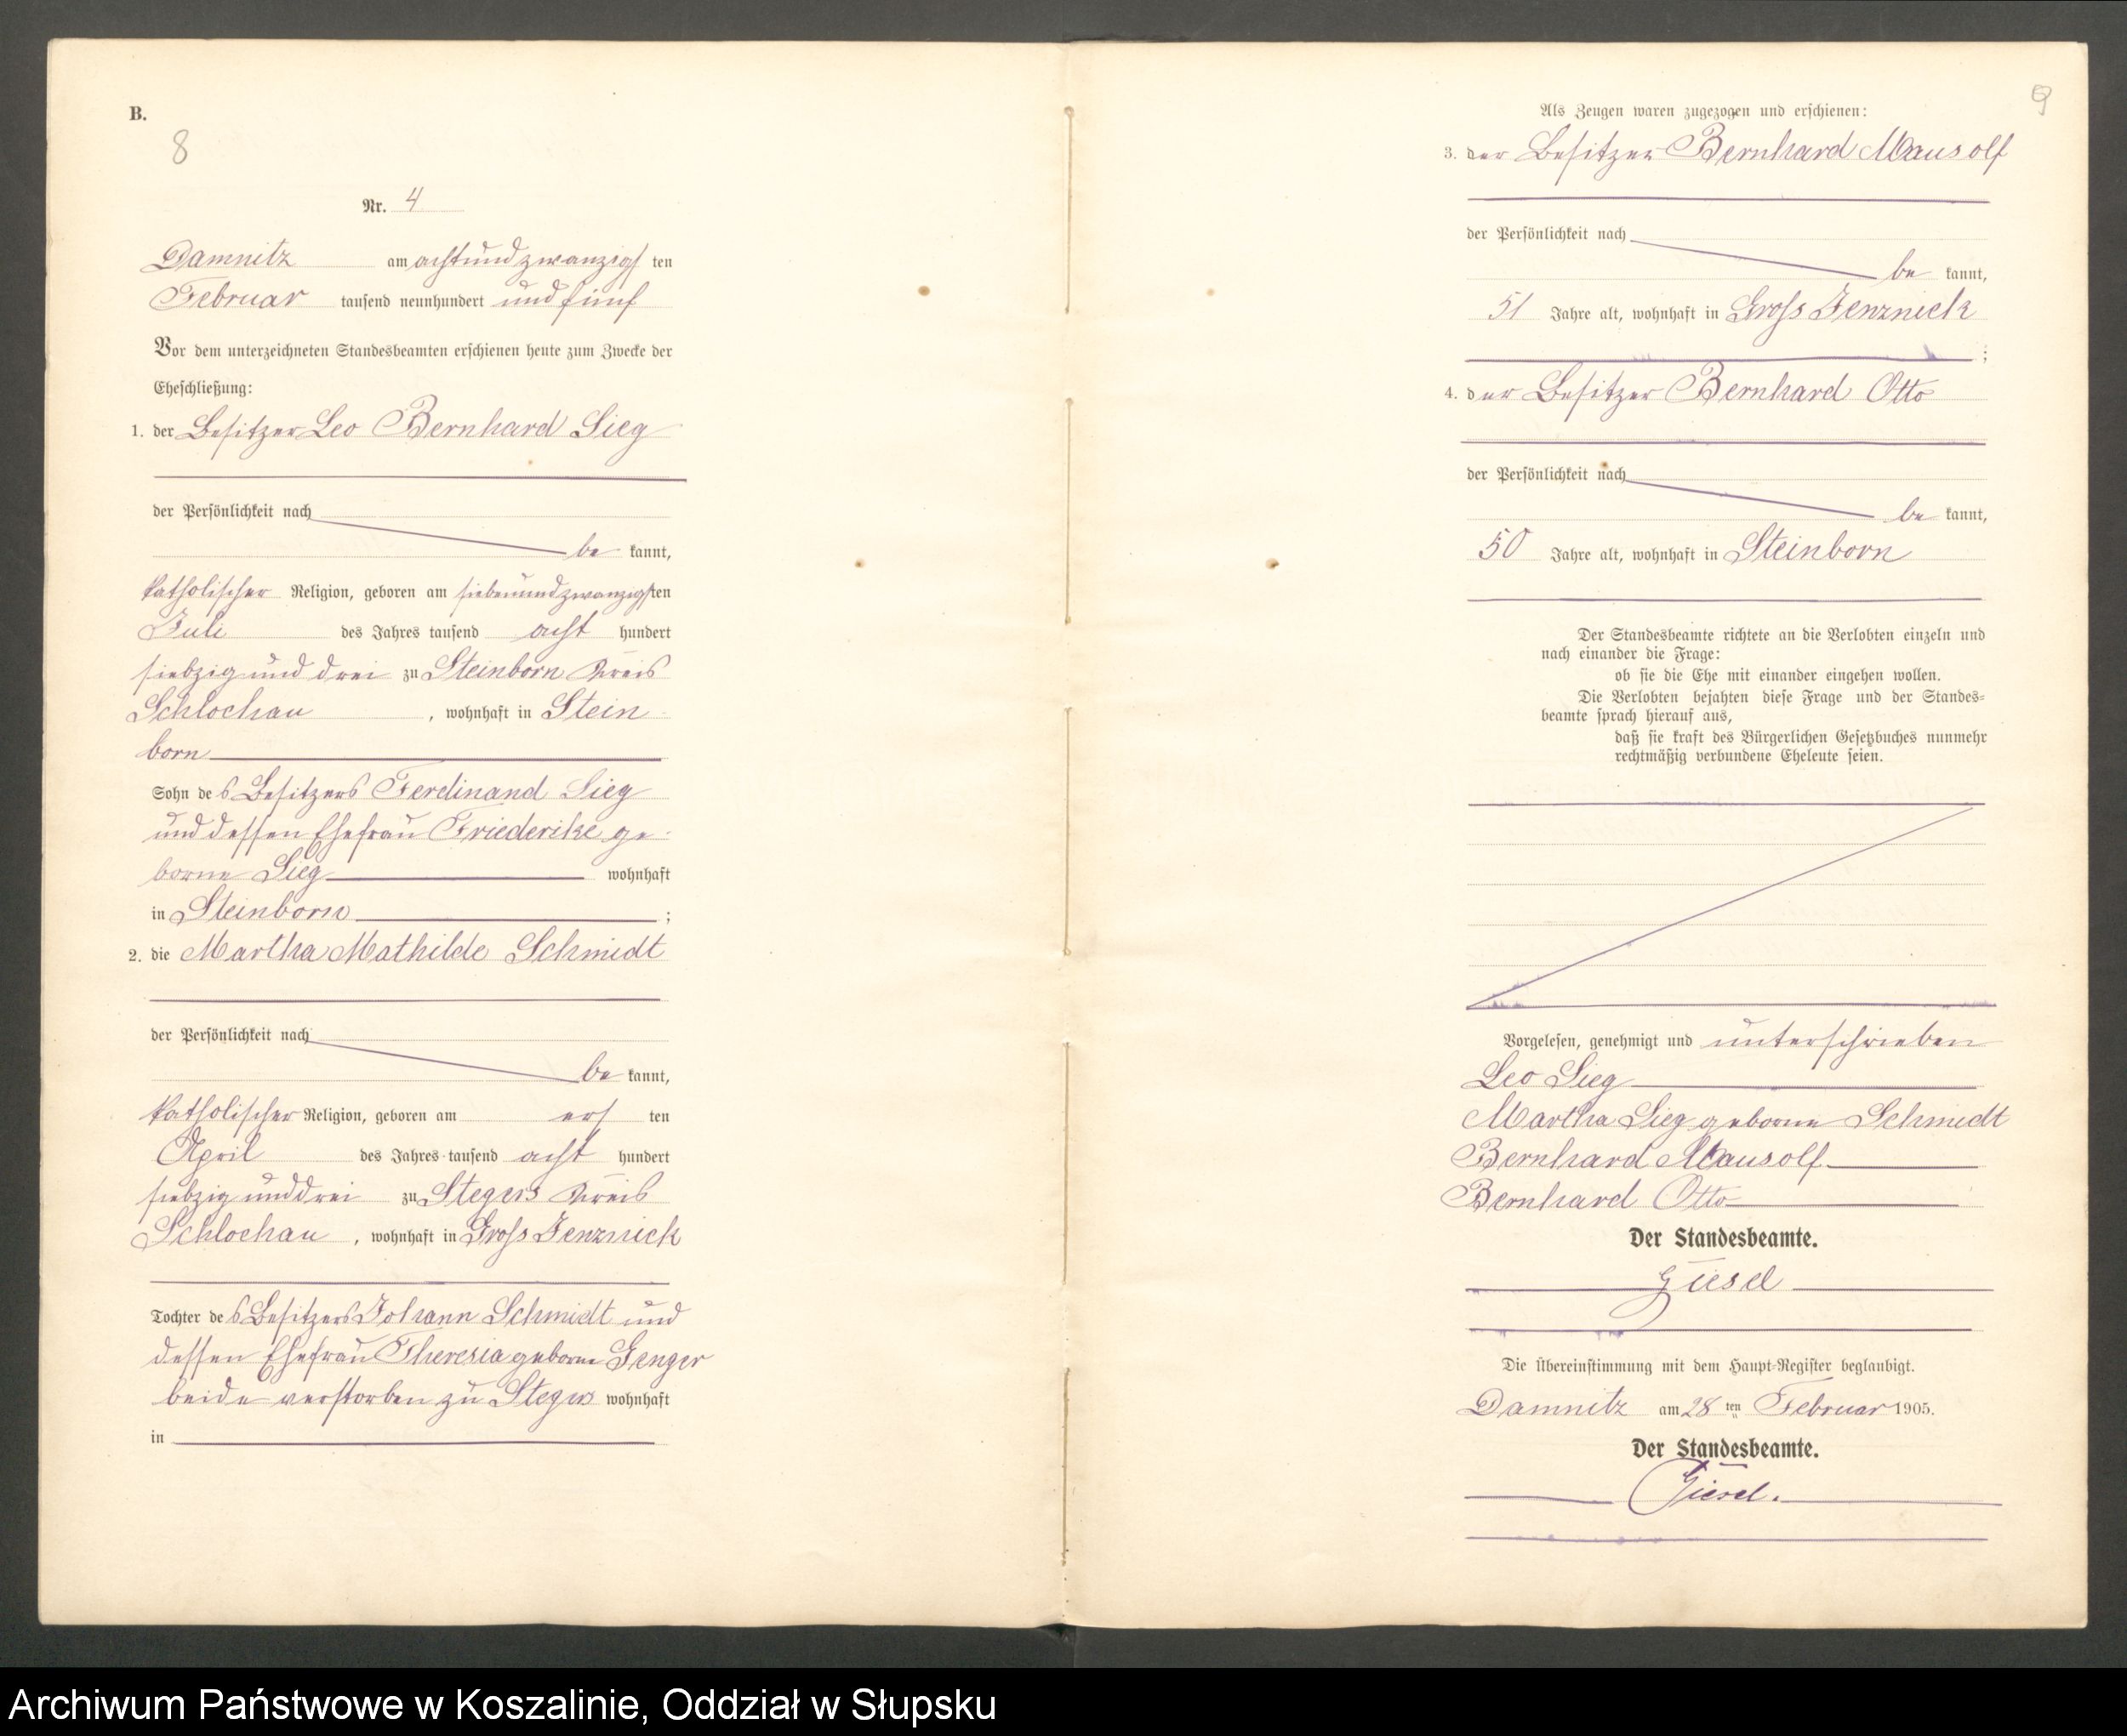 B.
8
Nr. 4
Damnitz am achtundzwanzigsten
Februar tausend neunhundert und fünf
Vor dem unterzeichneten Standesbeamten erschienen heute zum Zwecke der
Eheschließung:
1. der Besitzer Leo Bernhard Sieg
der Persönlichkeit nach
be kannt,
katholischer Religion, geboren am siebenundzwanzigsten
Juli des Jahres tausend acht hundert
siebzig und drei zu Steinborn Kreis
Schlochau, wohnhaft in Stein
born
Sohn des Besitzers Ferdinand Sieg
und dessen Ehefrau Friederike ge-
borne Sieg wohnhaft
in Steinborn;
2. die Martha Mathilde Schmidt
der Persönlichkeit nach
be kannt,
katholischer Religion, geboren am ersten
April des Jahres tausend acht hundert
siebzig und drei zu Stegers Kreis
Schlochau, wohnhaft in Gross Jenznick
Tochter des Besitzers Johann Schmidt und
dessen Ehefrau Theresia geborne Genger
beide verstorben zu Stegers wohnhaft
in
9
Als Zeugen waren zugezogen und erschienen:
3. der Besitzer Bernhard Mausolf
der Persönlichkeit nach
be kannt,
51 Jahre alt, wohnhaft in Gross Jenznick
;
4. der Besitzer Bernhard Otto
der Persönlichkeit nach
be kannt,
50 Jahre alt, wohnhaft in Steinborn
Der Standesbeamte richtete an die Verlobten einzeln und
nach einander die Frage:
ob sie die Ehe mit einander eingehen wollen.
Die Verlobten bejahten diese Frage und der Standes-
beamte sprach hierauf aus,
daß sie kraft des Bürgerlichen Gesetzbuches nunmehr
rechtmäßig verbundene Eheleute seien.
Vorgelesen, genehmigt und unterschrieben
Leo Sieg
Martha Sieg geborne Schmidt
Bernhard Mausolf
Bernhard Otto
Der Standesbeamte.
Giesel
Die Übereinstimmung mit dem Haupt-Register beglaubigt.
Damnitz am 28ten Februar 1905.
Der Standesbeamte.
Giesel.
Archiwum Państwowe w Koszalinie, Oddział w Słupsku